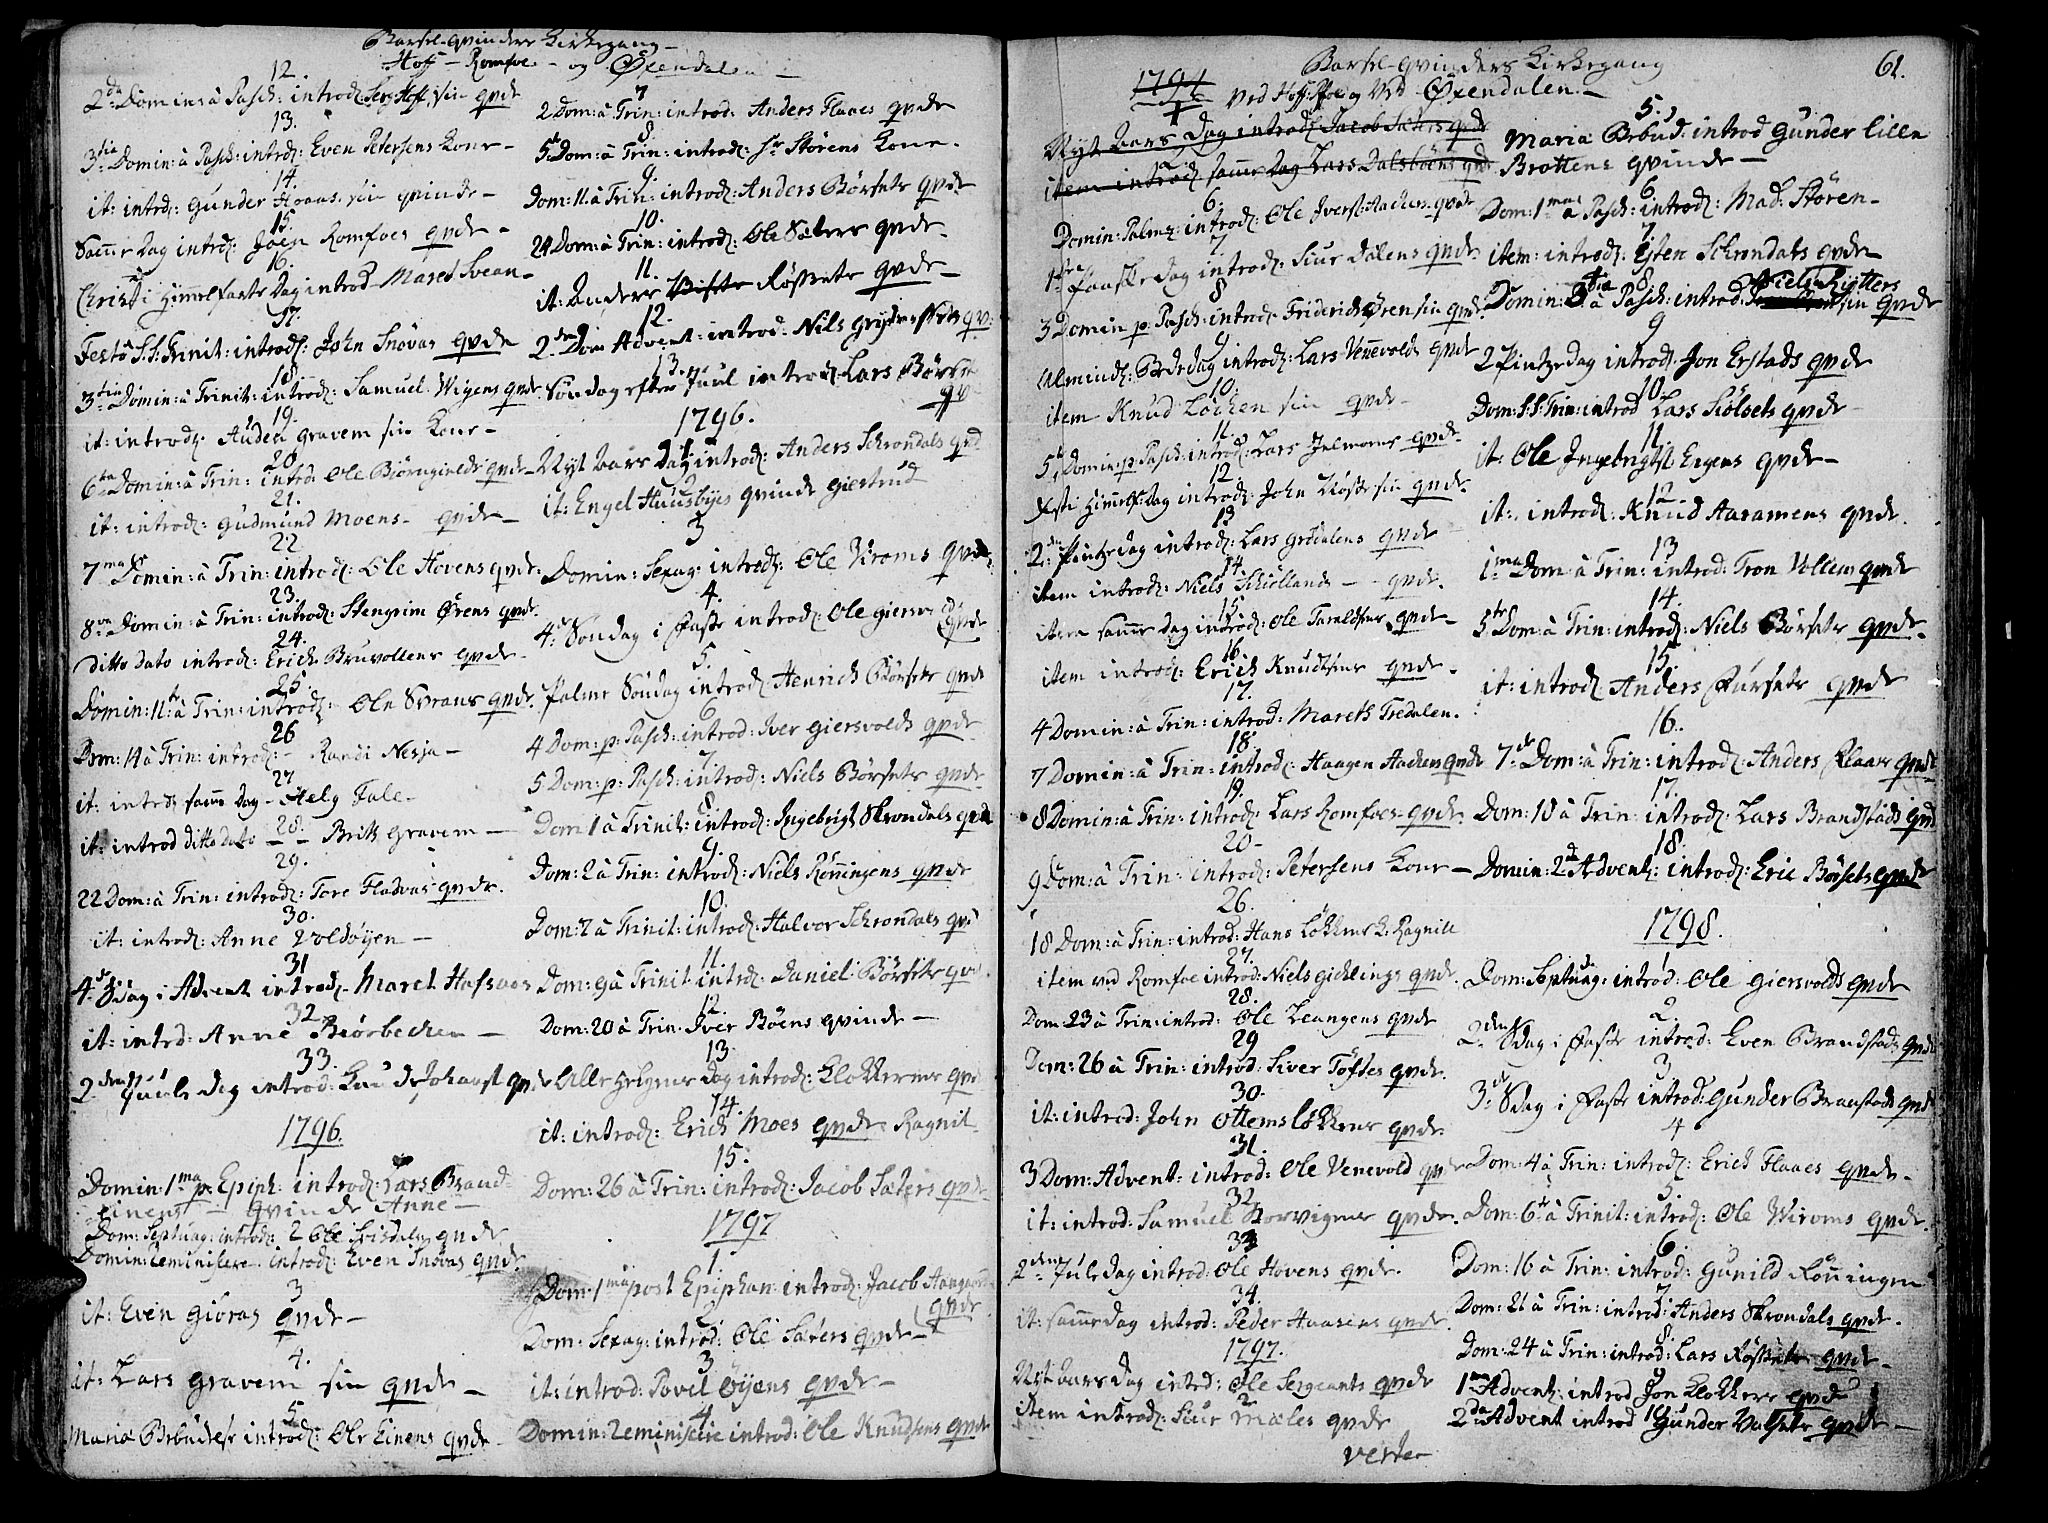 Barsel-qvinders Kirkegang
Hoff - Romfoe - og Øxendalen
12.
2da Domin à Pasch: introd: Hoff, sin qvde
13.
3tia Domin: à Pasch: introd: Even Petersens Kone -
14.
it: introd: Gunder Hoaas sin qvinde -
15.
Samme Dag introd: Joen Romfoes qvde -
16.
Christi Himmelfarts Dag introd Maret Svean -
17.
Festo S.S. Trinit: introd: John Snøvas qvde
18.
3tia Domin: à Trinit: introd: Samuel Wigens qvde
19.
it: introd: Auden Gravem sin Kone -
20.
6ta Domin: à Trin: introd: Ole Biørngields qvde -
21.
it: introd: Gudmund Moens - qvde -
22
7ma Domin: à Trin: introd: Ole Hovens qvde:
23.
8va Domin: à Trin: introd: Stengrim Ørens qvde.
24.
Ditto Dato introd: Erich Bruvollens qvde -
25.
Domin: 11te à Trin: introd: Ole Svans qvde.
26
Dom: 14 à Trin: introd: - Randi Nesja -
27
it: introd: samme Dag - Helg Fale -
28.
it: introd ditto dato - Britt Gravem -
29.
22 Dom: à Trin: introd: Tore Fladvas qvde.
30.
it: introd: Anne Volsøyen -
31
4de Sdag i Advent introd: Maret Hafsaas
32
it: introd: Anne Biørbechen -
33.
2den Juule dag introd: Knud Johans qvde
1796.
1
Domin: 1ma p: Epiph: introd: Lars Brand-
einens - qvinde Anne -
Dom: Septuag: introd: 2 Ole Frisdalens qvde
Domin: Reminiscere introd: Even Snøvas qvde.
3
it: Even Giøras qvde -
4.
it: Lars Gravem sin qvde -
5
Mariæ Bebudelse introd: Ole Einens qvde -
7
2 Dom: à Trin: introd: Anders Flaaes qvde
8.
5te Dom: à Trin: introd: Sr Størens Kone.
9.
Dom: 11. à Trin: introd: Anders Børsets qvde
10.
24 Dom: à Trin: introd: Ole Sæters qvde.
11.
it: Anders Røssets qvde -
12.
2den Dom Advent: introd: Nils Grydersets qv:
13.
Søndag efter Juul introd: Lars Børset
qv -
1796.
1
Nyt Aars Dag introd: Anders Schrondals qvd
2
it: Engel Huusbyes qvinde Giertrud
3
Domin: Sexag: introd: Ole Viroms qvde.
4.
4de Søndag i Faste introd: Ole Giersvolds
qvde
5.
Palme Søndag introd: Henrich Børsets qvde
6
4 Dom: p: Pasch: introd: Iver Giersvolds qvde
7
5 Dom: p: Pasch: introd: Niels Børsets qvde
8
Dom 1 à Trinit: introd: Ingebrigt Skrondals qvd
9
Dom: 2 à Trin: introd: Niels Rønningens qvde
10.
Dom: 2 à Trinit: introd: Halvor Schrondals qvd
11.
Dom: 9 à Trinit introd: Daniel Børsets qvd.
12.
Dom: 20 à Trin: Iver Bøens qvinde -
13.
Alle Helgens Dag introd: Klokkerens qvd
14.
it: introd: Erich Moes qvde Ragnil
15.
Dom: 26 à Trin: introd: Jacob Sæters qvde
1797
1.
Dom: 1ma post Epiphan: introd: Jacob Hangaards
qvde
2
Dom: Sexag: introd: Ole Sæters qvde -
3
it: introd: Povel Øyens qvde -
4
Domin: Reminiscere introd: Ole Knudsens qvde
Barsel-qvinders Kirkegang
61.
1797
ved Hoff og ved Øxendalen -
1
Nyt Aars Dag introd: Jacob Sæters qvde
2.
item introd: samme Dag Lars Dalsbøens qvde
6.
Domin: Palmr: introd: Ole Ivers: Aachens qvde
7
1ste Paaske dag introd: Siur Dalens qvde
8
3 Domin p: Pasch: introd: Friderich Øren sin qvde
9
Almind: Bededag introd: Lars Vennevolds qvde
10.
item Knud Løchen sin qvde -
11.
5te Domin: p: Pasch: introd: Lars Jelmoens qvde
12.
Xsti Himmelf: Dag introd: John Røste sin qvde.
13
2den Pintzedag introd: Lars Grødalens qvde -
14.
item introd: Niels Schiøllands - qvde.
15.
item samme Dag introd: Ole Taraldsens qvde -
16.
item introd: Erich Knudsens qvde -
17.
4 Domin: à Trin: introd: Mareth Tredalen.
18.
7 Domin: à Trin: introd: Haagen Aachens qvde
19.
8 Domin: à Trin: introd: Lars Romfoes qvde.
20 -
9 Dom: à Trin: introd: Petersens Kone -
26.
18 Dom: à Trin: introd: Hans Løkkens K: Ragnill
27.
item ved Romfoe introd: Niels Gicklings qvde.
28.
Dom: 23 à Trin: introd: Ole Leangens qvde
29
Dom: 26 à Trin: introd: Siver Tøftes qvde.
30.
it: introd: John Ottemsløkkens qvde
31.
3 Dom: Advent: introd: Ole Venevold qvde
32
it: introd: Samuel Storvigens qvde.
33
2den Jule dag introd: Ole Hovens qvde.
34.
it: samme dag introd: Peder Haasens qvde
1797.
1
Nyt Aars dag introd: Ole Sergeants qvde
2
item introd: Siur Mæles qvde
verte
5.
Maria Bebud: introd Gunder Lilla
Brottens qvinde -
6
Dom: 1ma à Pasch: introd: Mad: Støren -
7
item: introd: Esten Schrondals qvde
8
Niels Rytters
Domin: 3tia à Pasch: introd: sin qvde
9
2 Pintzedag introd: Jon Erstads qvde
10
Dom: S.S: Trin: introd Lars Siølsets qvde -
11
it: Ole Ingebrigtsl: Engens qvde -
12
it: introd: Knud Aaramens qvde.
13
1ma Dom: à Trin: introd: Tron Vollens qvde
14.
5te Dom: à Trin: introd: Niels Børsets qvde.
15.
it: introd: Anders Fursets qvde
16.
7de Dom: à Trin: introd: Anders Flaaes qvde
17.
Dom: 10 à Trin: introd: Lars Brandstads qvd
18.
Domin: 2d Advent: introd: Eric Børsets qvde
1798.
1
Dom: Septuag: introd: Ole Giersvolds qvde
2.
2den Sdag i Faste introd: Even Brandstads qvde
3
3de Sdag i Faste introd: Gunder Branstads qvde
4
Dom: 4 à Trin: introd: Erich Flaaes qvde -
5.
Dom: 6te à Trinit: introd: Ole Wiroms qvde.
6.
Dom: 16 à Trin: introd: Gunild Rønningen
7
Dom: 21 à Trin: introd: Anders Skrondals qvde.
8.
Dom: 24 à Trin: introd: Lars Røssets qvde -
9
1ma Advent: introd Jon Klokkers qvde
10
2da Advent introd Gunder Valsets qvde -